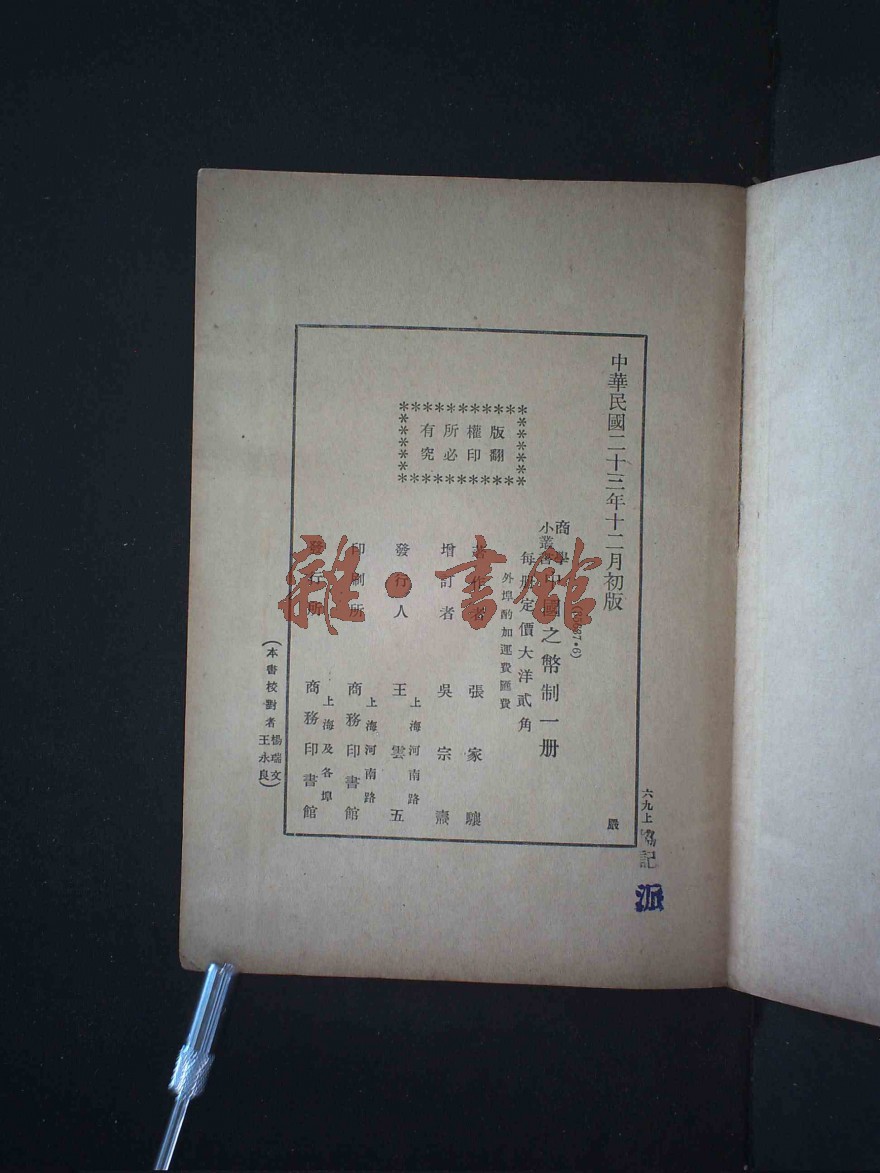 中華民國二十三年十二月初版
商學
小叢書
中國之幣制一册
每册定價大洋貳角
外埠酌加運費匯費
版權所有
翻印必究
著作者 張家驤
增訂者 吳宗燾
發行人 上海河南路 王雲五
印刷所 上海河南路 商務印書館
發行所 上海及各埠 商務印書館
(本書校對者楊瑞文王永良)
嚴
六九上
記
派
雜·書館